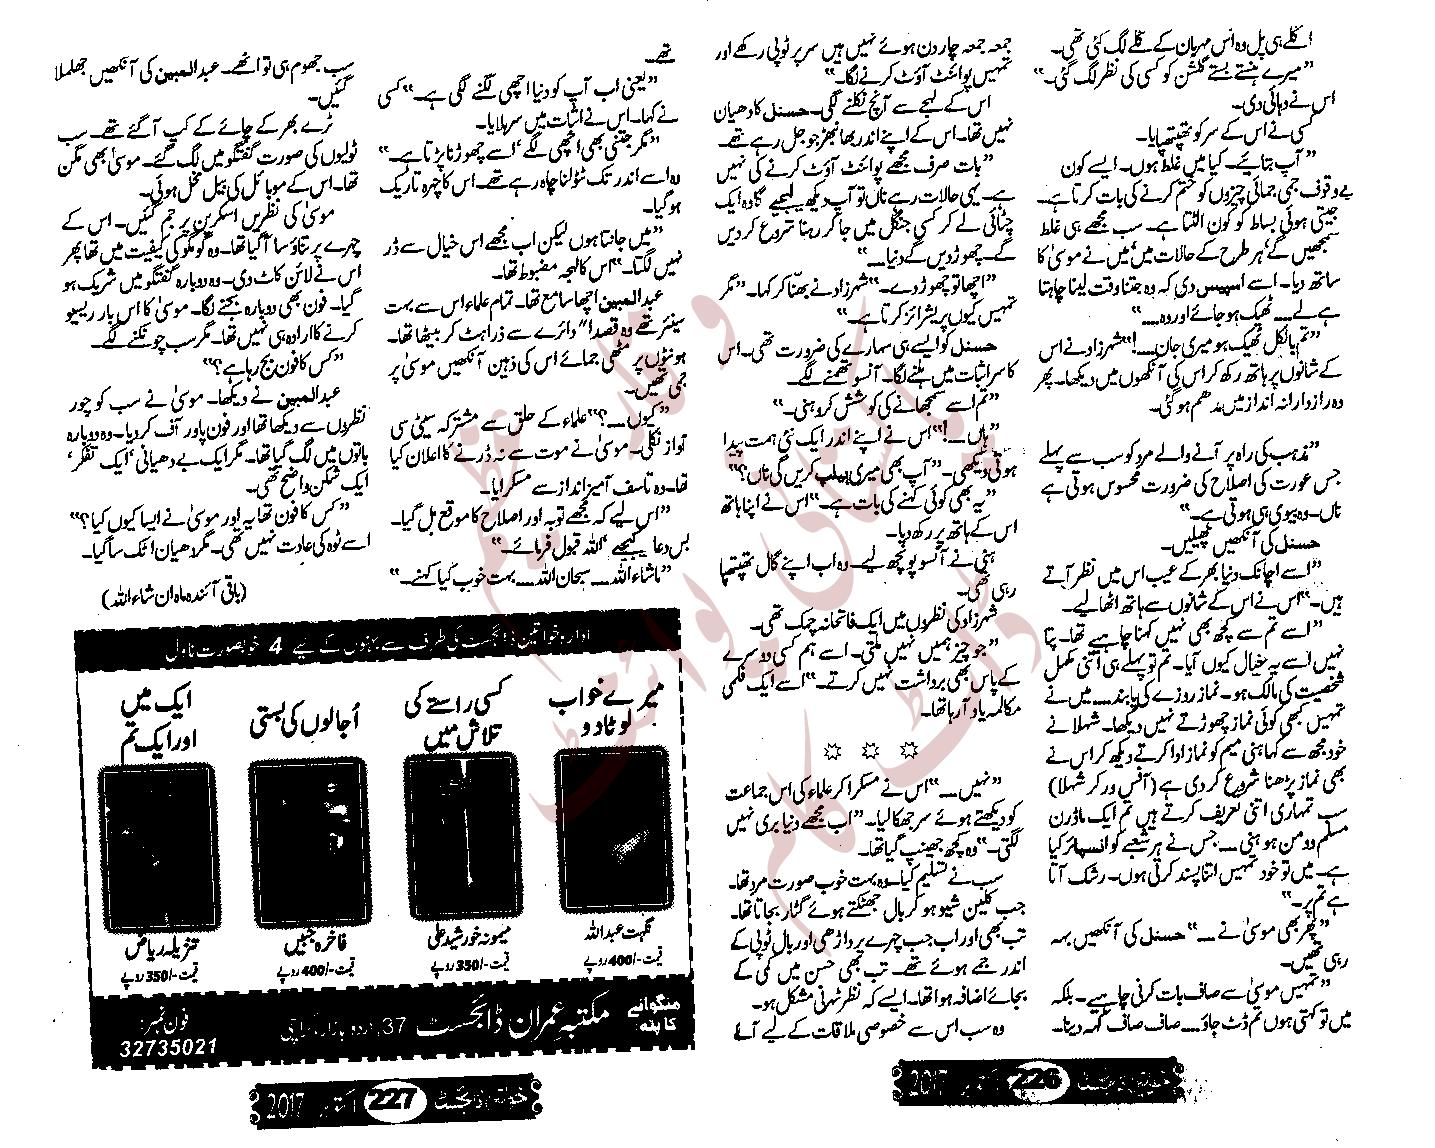 اگلے ہی پل وہ اس مہربان کے گلے لگ گئی تھی۔
”میرے ہنستے بستے گلشن کو کسی کی نظر لگ گئی۔“
اس نے دہائی دی۔
کسی نے اس کے سر کو تھپتھپایا۔
”آپ بتائیے۔ کیا میں غلط ہوں۔ ایسے کون
بے وقوف جمی جمائی چیزوں کو ختم کرنے کی بات کرتا ہے۔
جیتی ہوئی بساط کو کون الٹتا ہے۔ سب مجھے ہی غلط
سمجھیں گے‘ ہر طرح کے حالات میں‘ میں نے موسیٰ کا
ساتھ دیا۔ اسے اسپیس دی کہ وہ جتنا وقت لینا چاہتا
ہے لے۔۔۔ ٹھیک ہو جائے اور وہ۔۔۔“
”تم بالکل ٹھیک ہو میری جان۔۔۔!“ شہرزاد نے اس
کے شانوں پر ہاتھ رکھ کر اس کی آنکھوں میں دیکھا۔ پھر
وہ رازدارانہ انداز میں مدھم ہو گئی۔
”مذہب کی راہ پر آنے والے مرد کو سب سے پہلے
جس عورت کی اصلاح کی ضرورت محسوس ہوتی ہے
ناں۔ وہ بیوی ہی ہوتی ہے۔“
حسنل کی آنکھیں پھیلیں۔
”اسے اچانک دنیا بھر کے عیب اس میں نظر آتے
ہیں۔“ اس نے اس کے شانوں سے ہاتھ اٹھا لیے۔
”اسے تم سے کچھ بھی نہیں کہنا چاہیے تھا۔ پتا
نہیں اسے یہ خیال کیوں آیا۔ تم تو پہلے ہی اتنی مکمل
شخصیت کی مالک ہو۔ نماز روزے کی پابند۔۔۔ میں نے
تمہیں کبھی کوئی نماز چھوڑتے نہیں دیکھا۔ شہلا نے
خود مجھ سے کہا ہنی میم کو نماز ادا کرتے دیکھ کر اس نے
بھی نماز پڑھنا شروع کر دی ہے (آفس ورکر شہلا)
سب تمہاری اتنی تعریف کرتے ہیں تم ایک ماڈرن
مسلم وومن ہو ہنی۔۔۔ جس نے ہر شعبے کو انسپائر کیا
ہے۔ میں تو خود تمہیں اتنا پسند کرتی ہوں۔ رشک آتا
ہے تم پر۔“
”پھر بھی موسیٰ نے۔۔۔“ حسنل کی آنکھیں بہہ
رہی تھیں۔
”تمہیں موسیٰ سے صاف بات کرنی چاہیے۔ بلکہ
میں تو کہتی ہوں تم ڈٹ جاؤ۔۔۔ صاف صاف کہہ دینا۔
جمعہ جمعہ چار دن ہوئے نہیں ہیں سر پر ٹوپی رکھے اور
تمہیں پوائنٹ آؤٹ کرنے لگا۔“
اس کے لہجے سے آنچ نکلنے لگی۔ حسنل کا دھیان
نہیں تھا۔ اس کے اپنے اندر بھانبھڑ جو جل رہے تھے۔
”بات صرف مجھے پوائنٹ آؤٹ کرنے کی نہیں
ہے۔ یہی حالات رہے ناں تو آپ دیکھ لیجیے گا وہ ایک
چٹائی لے کر کسی جنگل میں جا کر رہنا شروع کر دیں
گے۔ چھوڑ دیں گے دنیا۔۔۔“
”اچھا تو چھوڑ دے۔“ شہرزاد نے بھنا کر کہا۔ ”مگر
تمہیں کیوں پریشرائز کرتا ہے۔“
حسنل کو ایسے ہی سہارے کی ضرورت تھی۔ اس
کا سر اثبات میں ہلنے لگا۔ آنسو تھمنے لگے۔
”تم اسے سمجھانے کی کوشش کرو ہنی۔“
”ہاں۔۔۔!“ اس نے اپنے اندر ایک نئی ہمت پیدا
ہوتی دیکھی۔ ”آپ بھی میری ہیلپ کریں گی ناں؟“
”یہ بھی کوئی کہنے کی بات ہے۔“ اس نے اپنا ہاتھ
اس کے ہاتھ پر رکھ دیا۔
ہنی نے آنسو پونچھ لیے۔ وہ اب اپنے گال تھپتھپا
رہی تھی۔
شہرزاد کی نظروں میں ایک فاتحانہ چمک تھی۔
”جو چیز ہمیں نہیں ملتی۔ اسے ہم کسی دوسرے
کے پاس بھی برداشت نہیں کرتے۔“ اسے ایک فلمی
مکالمہ یاد آ رہا تھا۔
☼ ☼ ☼
”نہیں۔۔۔“ اس نے مسکرا کر علماء کی اس جماعت
کو دیکھتے ہوئے سر جھکا لیا۔ ”اب مجھے دنیا بری نہیں
لگتی۔“ وہ کچھ جھینپ گیا تھا۔
سب نے تسلیم کیا۔ وہ بہت خوب صورت مرد تھا۔
جب کلین شیو ہو کر بال جھٹکتے ہوئے گٹار بجاتا تھا۔
تب بھی اور اب جب چہرے پر داڑھی اور بال ٹوپی کے
اندر جمے ہوئے تھے۔ تب بھی حسن میں کمی کے
بجائے اضافہ ہوا تھا۔ ایسے کہ نظر ٹھہرنی مشکل ہو۔
وہ سب اس سے خصوصی ملاقات کے لیے آئے
خواتین ڈائجسٹ 226 اکتوبر 2017
تھے۔
”یعنی اب آپ کو دنیا اچھی لگنے لگی ہے۔“ کسی
نے کہا۔ اس نے اثبات میں سر ہلایا۔
”مگر جتنی بھی اچھی لگے‘ اسے چھوڑنا پڑتا ہے۔“
وہ اسے اندر تک ٹٹولنا چاہ رہے تھے۔ اس کا چہرہ تاریک
ہو گیا۔
”میں جانتا ہوں لیکن اب مجھے اس خیال سے ڈر
نہیں لگتا۔“ اس کا لہجہ مضبوط تھا۔
عبدالمبین اچھا سامع تھا۔ تمام علماء اس سے بہت
سینئر تھے وہ قصداً“ دائرے سے ذرا ہٹ کر بیٹھا تھا۔
ہونٹوں پر مٹھی جمائے اس کی ذہین آنکھیں موسیٰ پر
جمی تھیں۔
”کیوں۔۔۔؟“ علماء کے حلق سے مشترکہ سیٹی سی
آواز نکلی۔ موسیٰ نے موت سے نہ ڈرنے کا اعلان کیا
تھا۔ وہ تاسف آمیز انداز سے مسکرایا۔
”اس لیے کہ مجھے توبہ اور اصلاح کا موقع مل گیا۔
بس دعا کیجیے‘ اللہ قبول فرمائے۔“
”ماشاء اللہ۔۔۔ سبحان اللہ۔۔۔ بہت خوب کیا کہنے۔“
سب جھوم ہی تو اٹھے۔ عبدالمبین کی آنکھیں جھلملا
گئیں۔
ٹرے بھر کے چائے کے کپ آ گئے تھے۔ سب
ٹولیوں کی صورت گفتگو میں لگ گئے۔ موسیٰ بھی مگن
تھا۔ اس کے موبائل کی بیل مخل ہوئی۔
موسیٰ کی نظریں اسکرین پر جم گئیں۔ اس کے
چہرے پر تناؤ سا آ گیا تھا۔ وہ گومگو کی کیفیت میں تھا پھر
اس نے لائن کاٹ دی۔ وہ دوبارہ گفتگو میں شریک ہو
گیا۔ فون بھی دوبارہ بجنے لگا۔ موسیٰ کا اس بار ریسیو
کرنے کا ارادہ ہی نہیں تھا۔ مگر سب چونکنے لگے۔
”کس کا فون بج رہا ہے؟“
عبدالمبین نے دیکھا۔ موسیٰ نے سب کو چور
نظروں سے دیکھا تھا اور فون پاور آف کر دیا۔ وہ دوبارہ
باتوں میں لگ گیا تھا۔ مگر ایک بے دھیانی‘ ایک تفکر‘
ایک شکن واضح تھی۔
”کس کا فون تھا یہ اور موسیٰ نے ایسا کیوں کیا؟“
اسے ٹوہ کی عادت نہیں تھی۔ مگر دھیان اٹک سا گیا۔
(باقی آئندہ ماہ ان شاء اللہ)
ادارہ خواتین ڈائجسٹ کی طرف سے بہنوں کے لیے 4 خوبصورت ناول
میرے خواب
لوٹا دو
نگہت عبداللہ
قیمت -/400 روپے
کسی راستے کی
تلاش میں
میمونہ خورشید علی
قیمت -/350 روپے
اُجالوں کی بستی
فاخرہ جبیں
قیمت -/400 روپے
ایک میں
اور ایک تم
تنزیلہ ریاض
قیمت -/350 روپے
منگوانے کا پتہ
مکتبہ عمران ڈائجسٹ 37، اردو بازار، کراچی
فون نمبر:
32735021
خواتین ڈائجسٹ 227 اکتوبر 2017